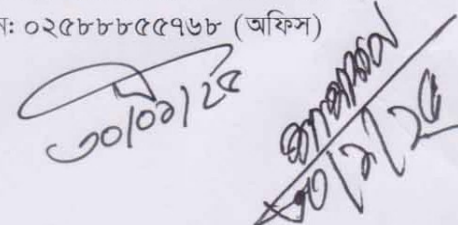 ন: ০২৫৮৮৮৫৫৭৬৮ (অফিস)
৩০/০৯/২৫
৩০/৯/২৫